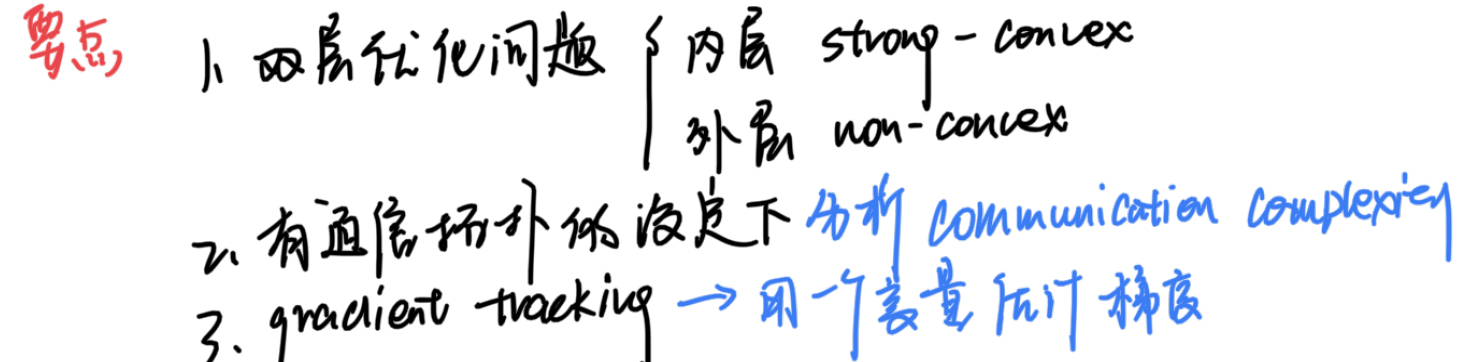 要点 1、双层优化问题 { 内层 strong-convex
外层 non-convex
2、有通信拓扑的设定下 分析 communication complexity
3、gradient tracking → 用一个变量估计梯度